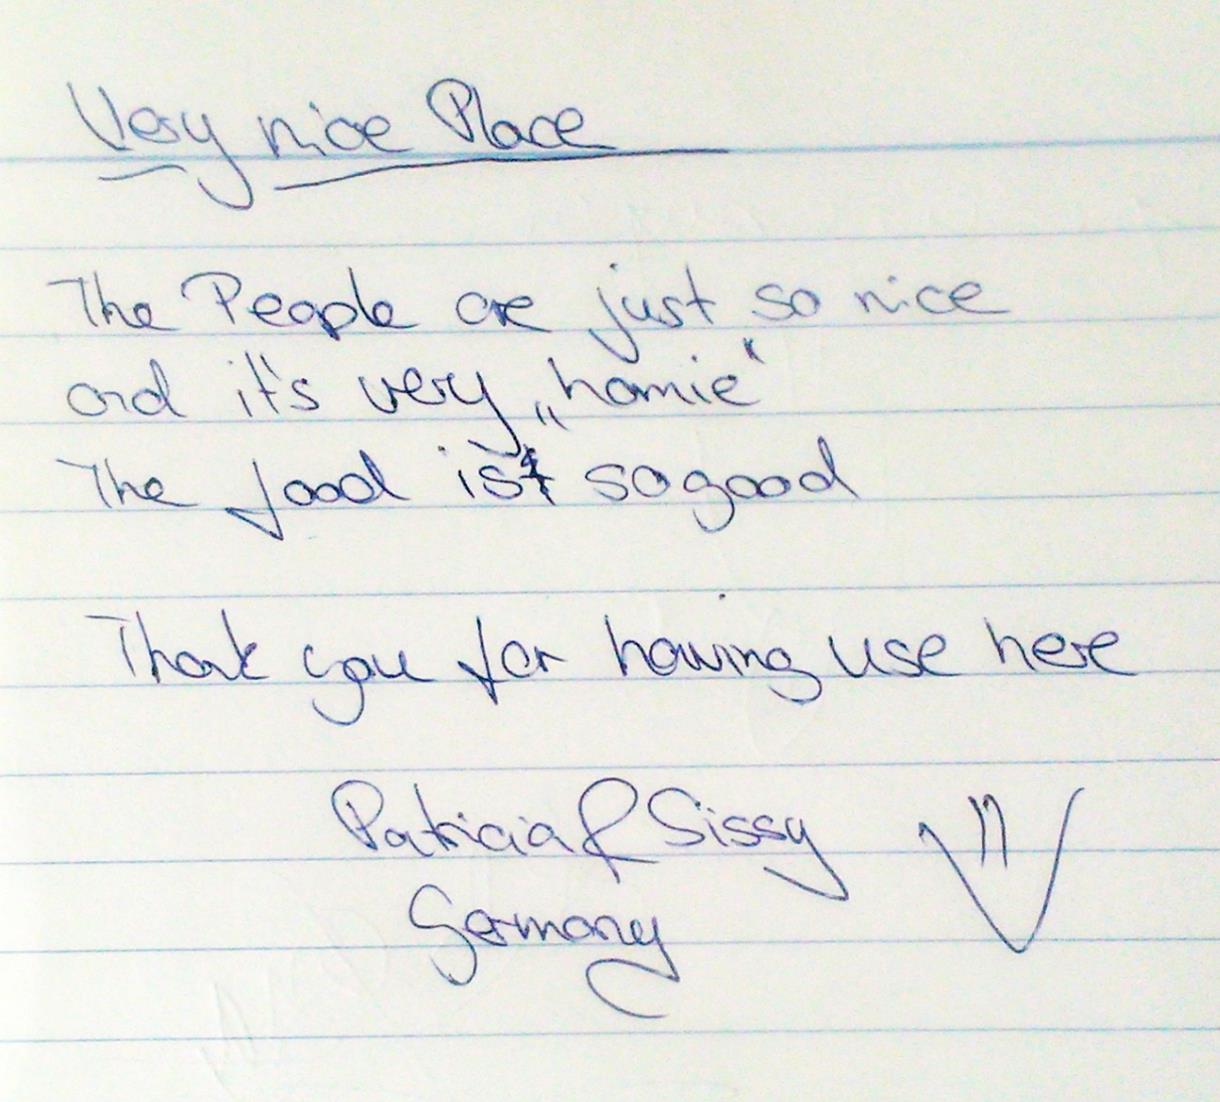 Very nice Place
The People are just so nice
and it's very „homie“
The food is so good
Thank you for having use here
Patricia & Sissy
Germany